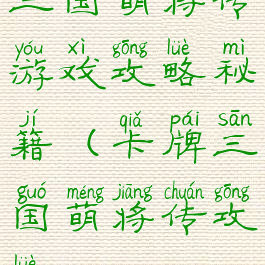 三国萌将传
yóu xì gōng lüè mì
游戏攻略秘
jí qiǎ pái sān
籍（卡牌三
guó méng jiāng chuán gōng
国萌将传攻
lüè